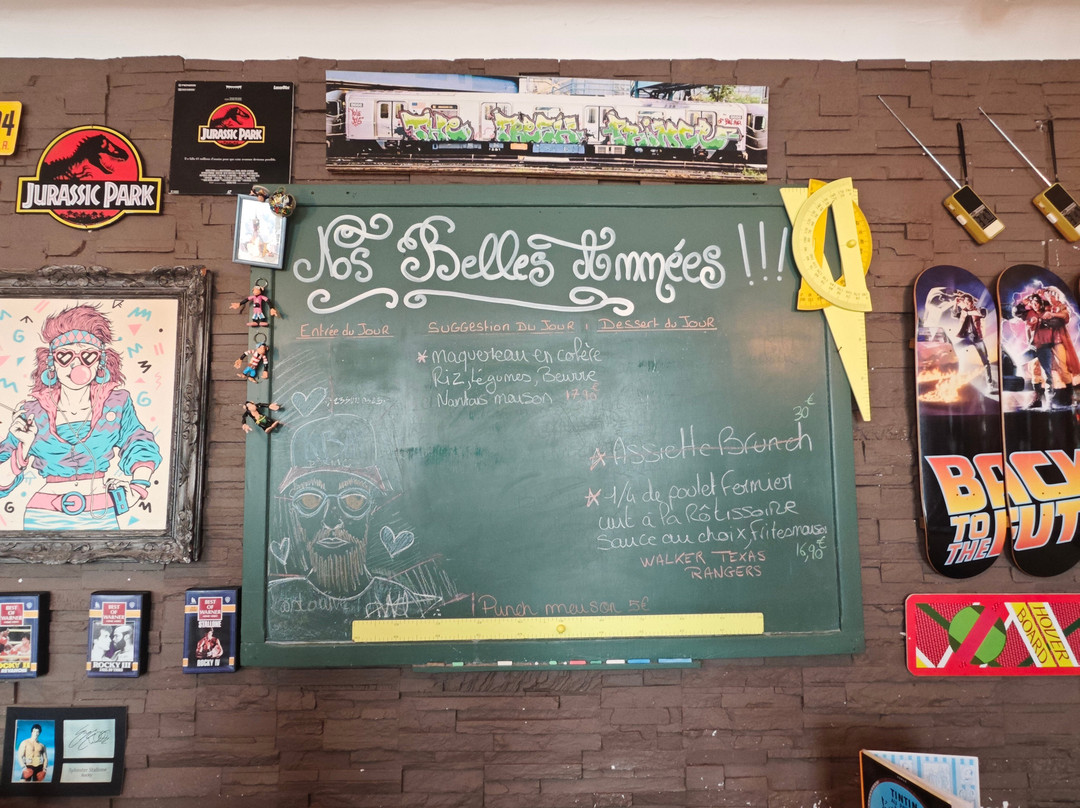 JURASSIC PARK
JURASSIC PARK
Nos Belles Années !!!
Entrée du Jour
Suggestion du Jour :
Dessert du Jour
* maquereau en colère
Riz, Légumes, Beurre
Nantais maison
30€
* Assiette Brunch
* 1/4 de poulet fermier
cuit à la Rôtissoire
Sauce au choix frites maison
16,90€
WALKER TEXAS
RANGERS
Punch maison 5€
BEST OF WARNER
ROCKY II
BEST OF WARNER
ROCKY III
BEST OF WARNER
STALLONE
ROCKY IV
BACK
TO THE FUT
HOVER
BOARD
TINTIN